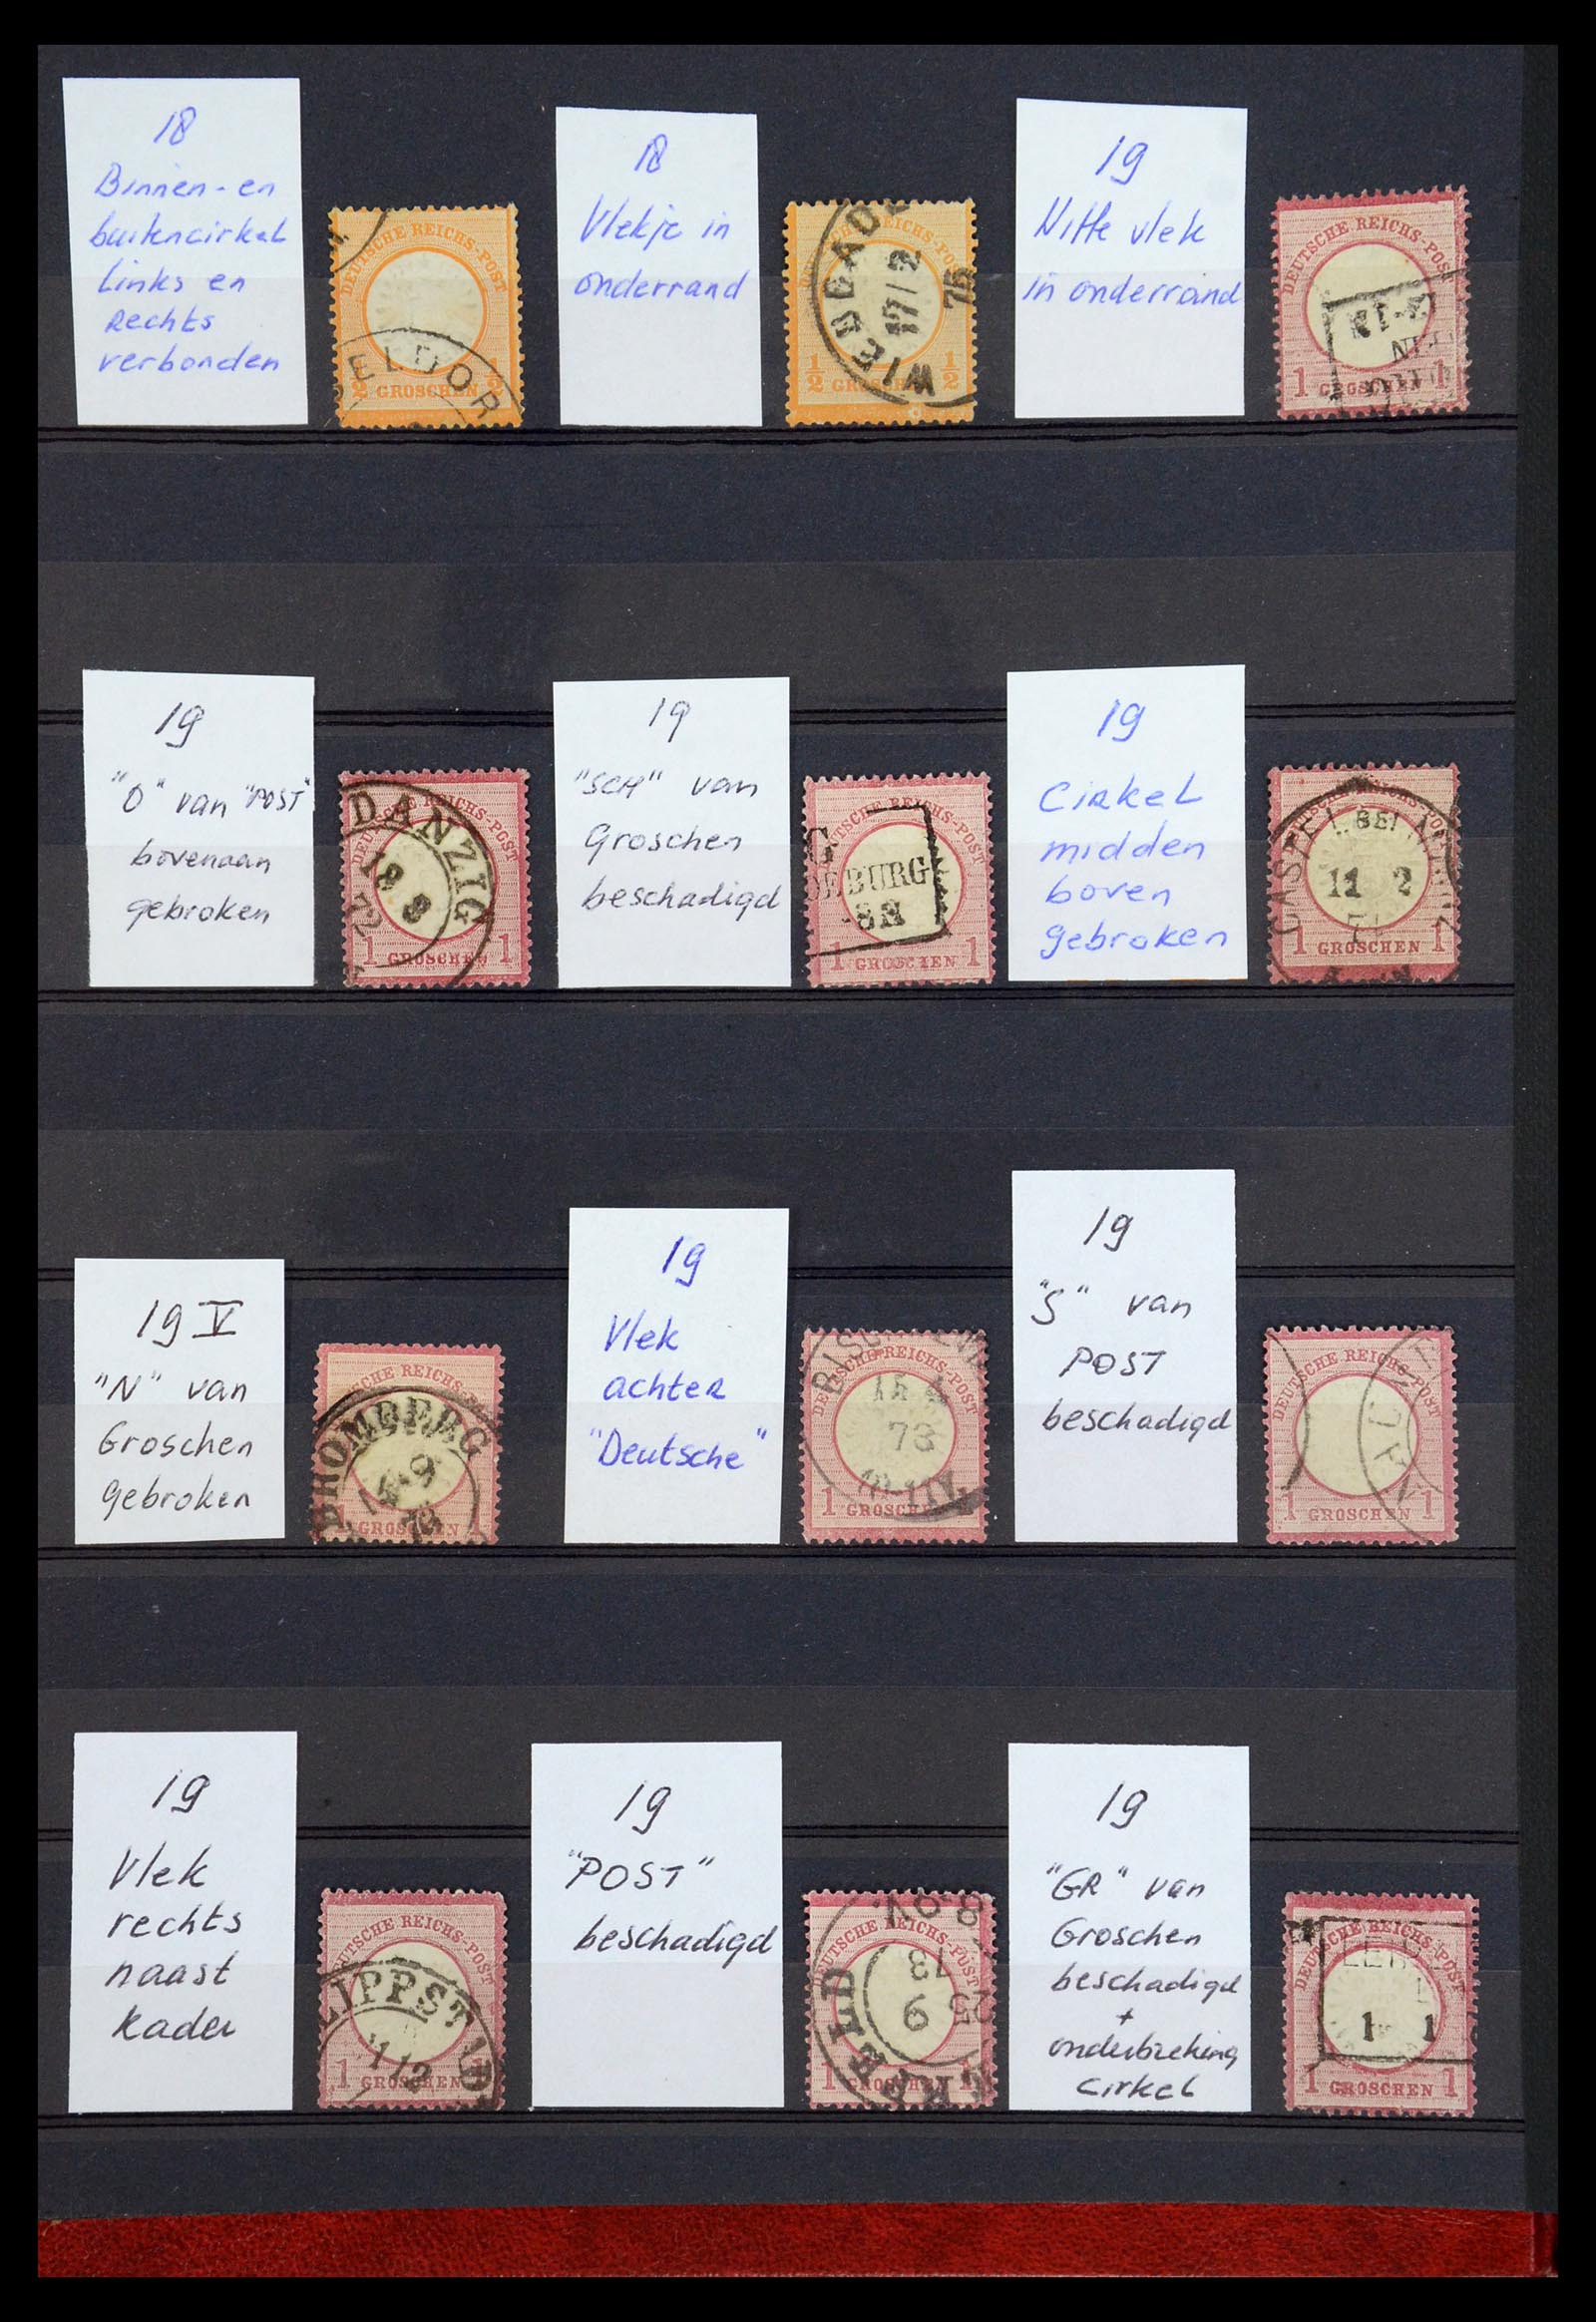 18
Binnen- en
buitencirkel
Links en
Rechts
verbonden
DEUTSCHE REICHS-POST
SELDOR
½ GROSCHEN ½
18
Vlekje in
onderrand
WIESBADE
17/2
75
½ ½
19
Witte vlek
in onderrand
DEUTSCHE REICHS-POST
1 GROSCHEN 1
19
"O" van "POST"
bovenaan
gebroken
DEUTSCHE REICHS-POST
DANZIG
19 8
1 GROSCHEN 1
19
"SCH" van
Groschen
beschadigd
DEUTSCHE REICHS-POST
G
DEBURG
-8N
1 GROSCHEN 1
19
Cirkel
midden
boven
gebroken
CASTEL BEI MAINZ
11 2
1 GROSCHEN 1
19 V
"N" van
Groschen
gebroken
DEUTSCHE REICHS-POST
BROMBERG
1 GROSCHEN 1
19
Vlek
achter
"Deutsche"
DEUTSCHE REICHS-POST
BISCH
15 4
73
1 GROSCHEN 1
19
"S" van
POST
beschadigd
DEUTSCHE REICHS-POST
1 GROSCHEN 1
19
Vlek
rechts
naast
kader
DEUTSCHE REICHS-POST
LIPPST
1 GROSCHEN 1
19
"POST"
beschadigd
DEUTSCHE REICHS-POST
8-9V.
73
25
9
1 GROSCHEN 1
19
"GR" van
Groschen
beschadigd
+
onderbreking
cirkel
DEUTSCHE REICHS-POST
1 1
1 GROSCHEN 1